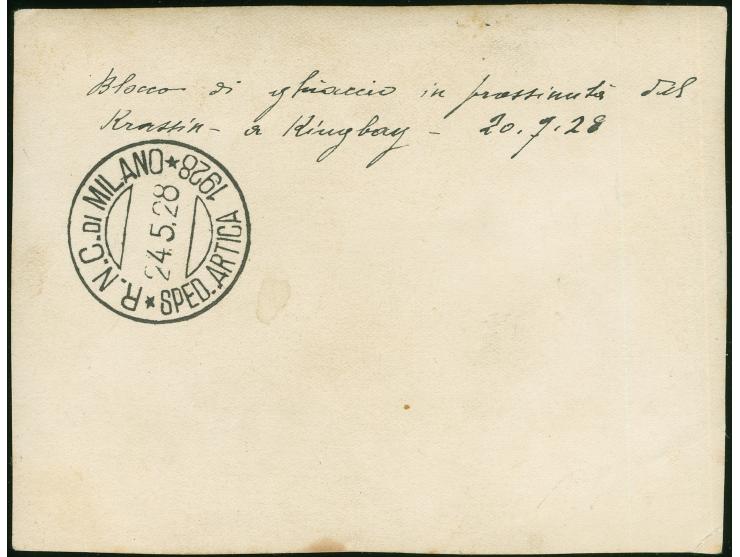 Blocco di ghiaccio in prossimità del
Krassin - a Kingbay - 20.7.28
R.N.C. DI MILANO * 1928
24.5.28
* SPED. ARTICA